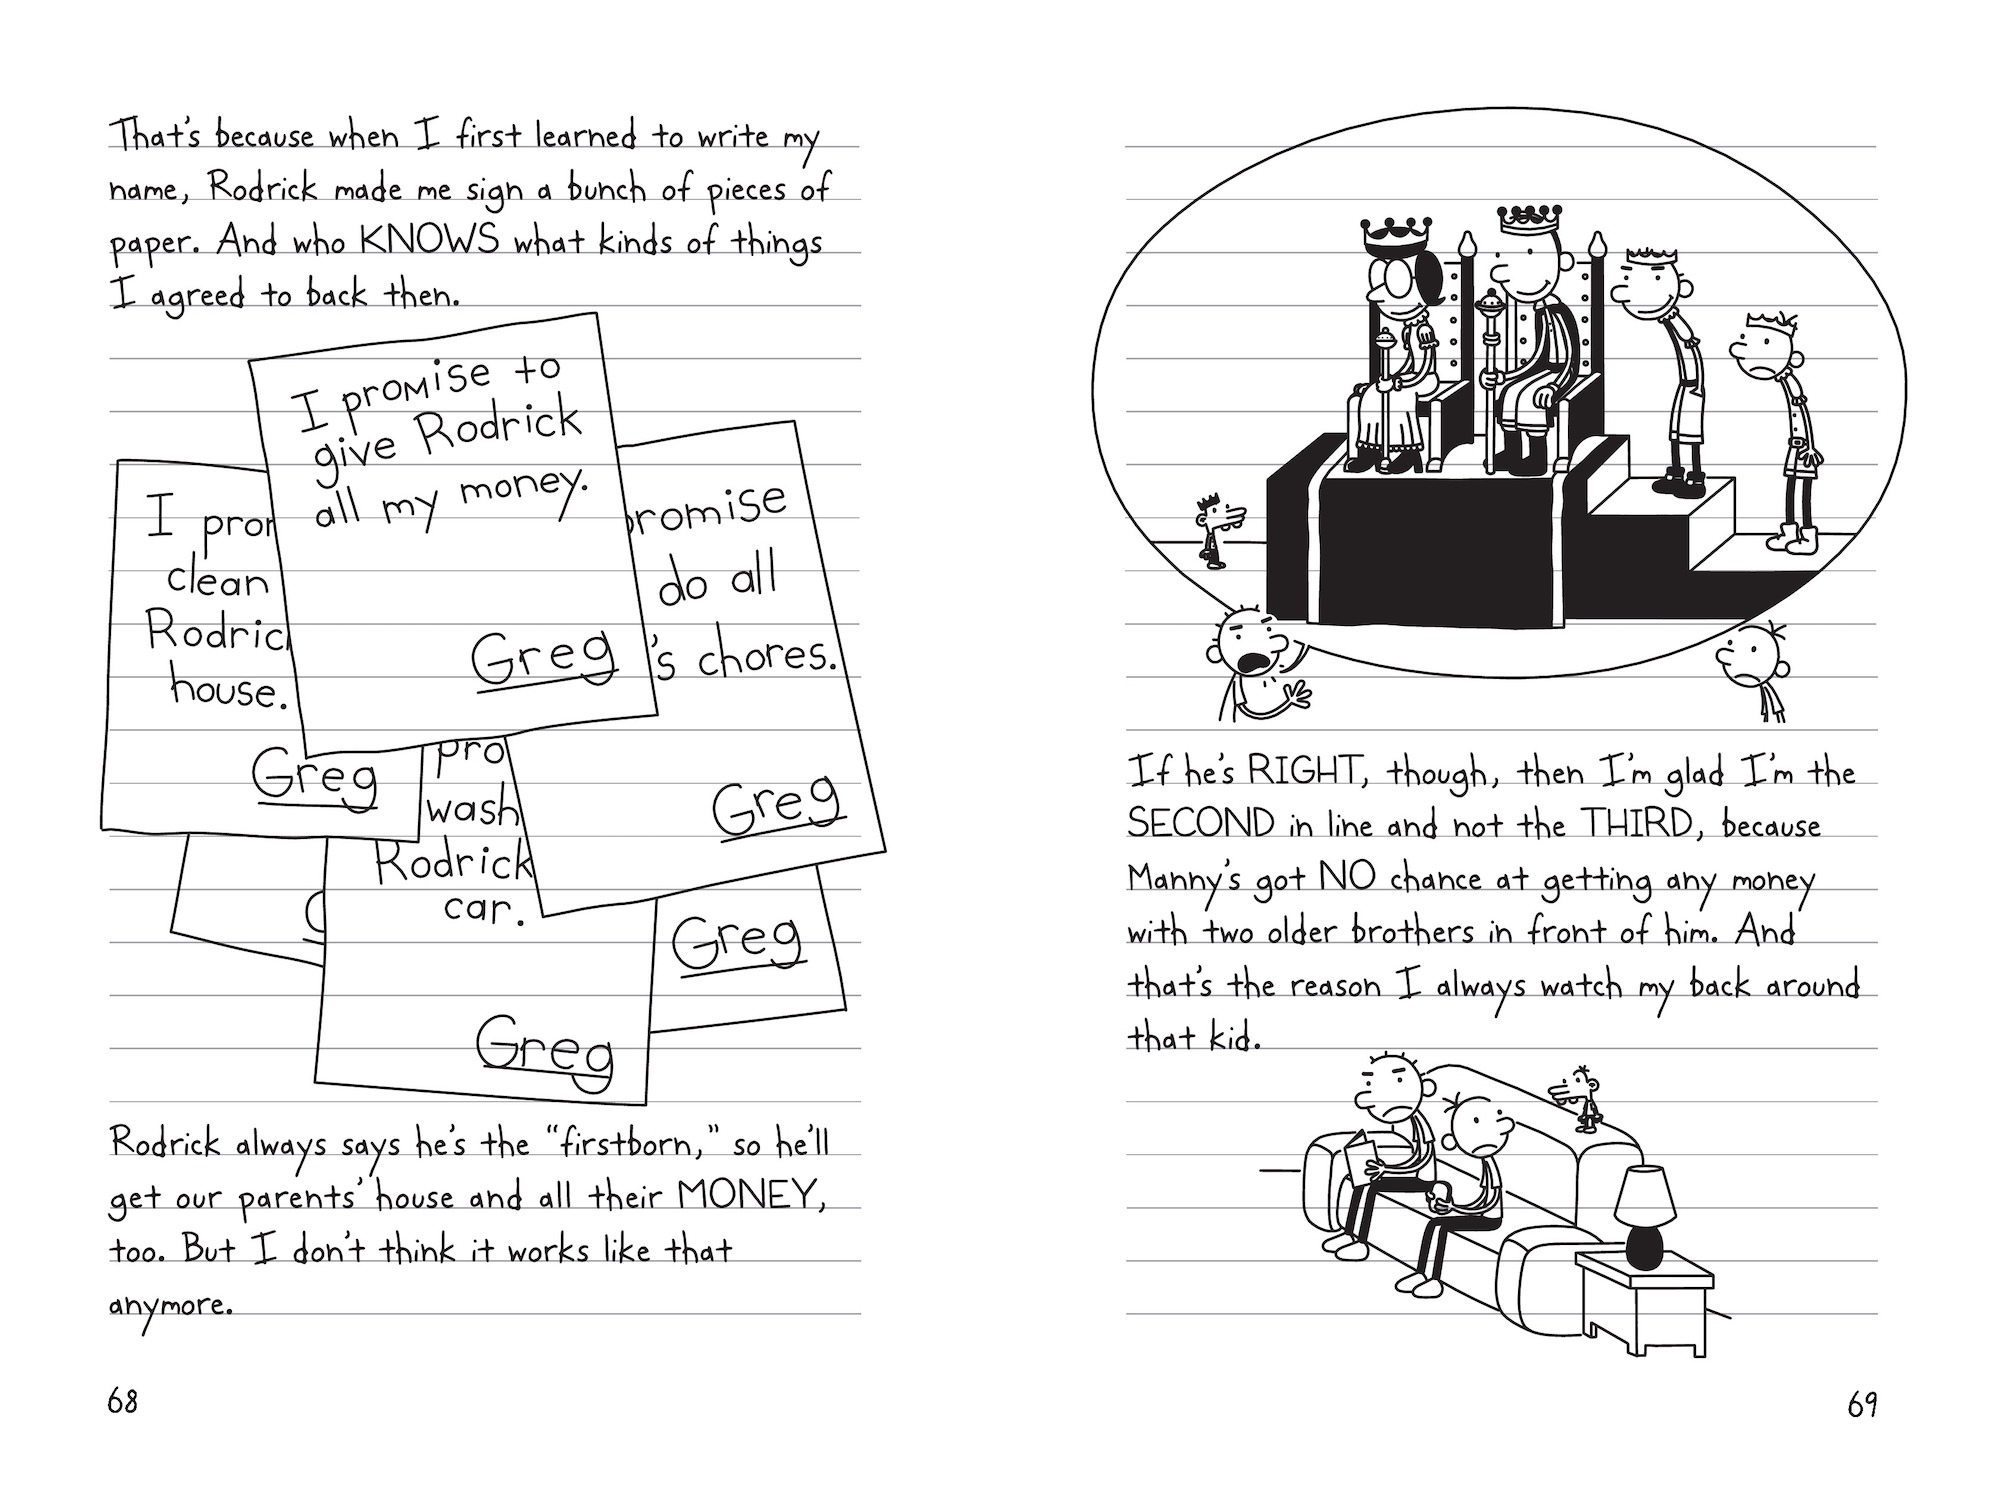 That's because when I first learned to write my
name, Rodrick made me sign a bunch of pieces of
paper. And who KNOWS what kinds of things
I agreed to back then.
I promise to
give Rodrick
all my money.
Greg
I pror
clean
Rodric
house.
Greg
romise
do all
's chores.
Greg
pro
wash
Rodrick
car.
Greg
G
Greg
Rodrick always says he's the "firstborn," so he'll
get our parents' house and all their MONEY,
too. But I don't think it works like that
anymore.
68
If he's RIGHT, though, then I'm glad I'm the
SECOND in line and not the THIRD, because
Manny's got NO chance at getting any money
with two older brothers in front of him. And
that's the reason I always watch my back around
that kid.
69